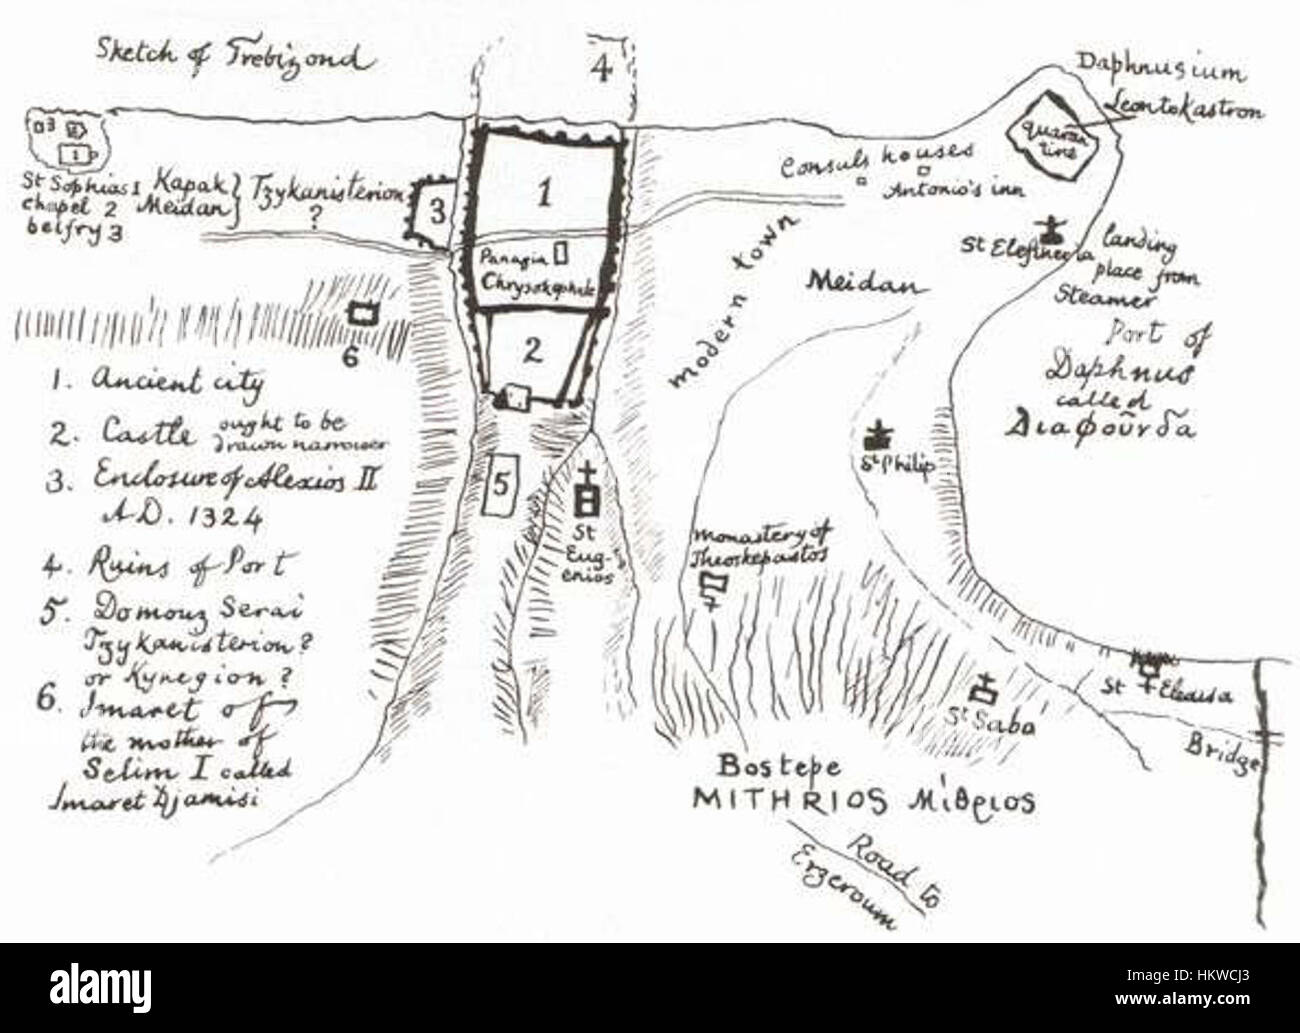 Sketch of Trebizond
4
Daphnusium
Leontokastron
quaran
tine
Consuls houses
Antonio's inn
3
2
1
St Sophias 1
chapel 2
belfry 3
Kapak
Meidan
Tzykanisterion
?
3
1
Panagia
Chrysokephale
2
6
modern town
Meidan
St Elefineria
landing
place from
Steamer
Port of
Daphnus
called
Διαφοῦνδα
1. Ancient city
2. Castle ought to be
drawn narrower
3. Enclosure of Alexios II
A.D. 1324
4. Ruins of Port
5. Domouz Serai
Tzykanisterion?
or Kynegion?
6. Imaret of
the mother of
Selim I called
Imaret Djamisi
5
St
Eug-
enios
St Philip
monastery of
Theoskepastos
St Saba
St Eleousa
Bridge
Bostepe
MITHRIOS Μίθριος
Road to
Erzeroum
a
alamy
Image ID: HKWCJ3
www.alamy.com